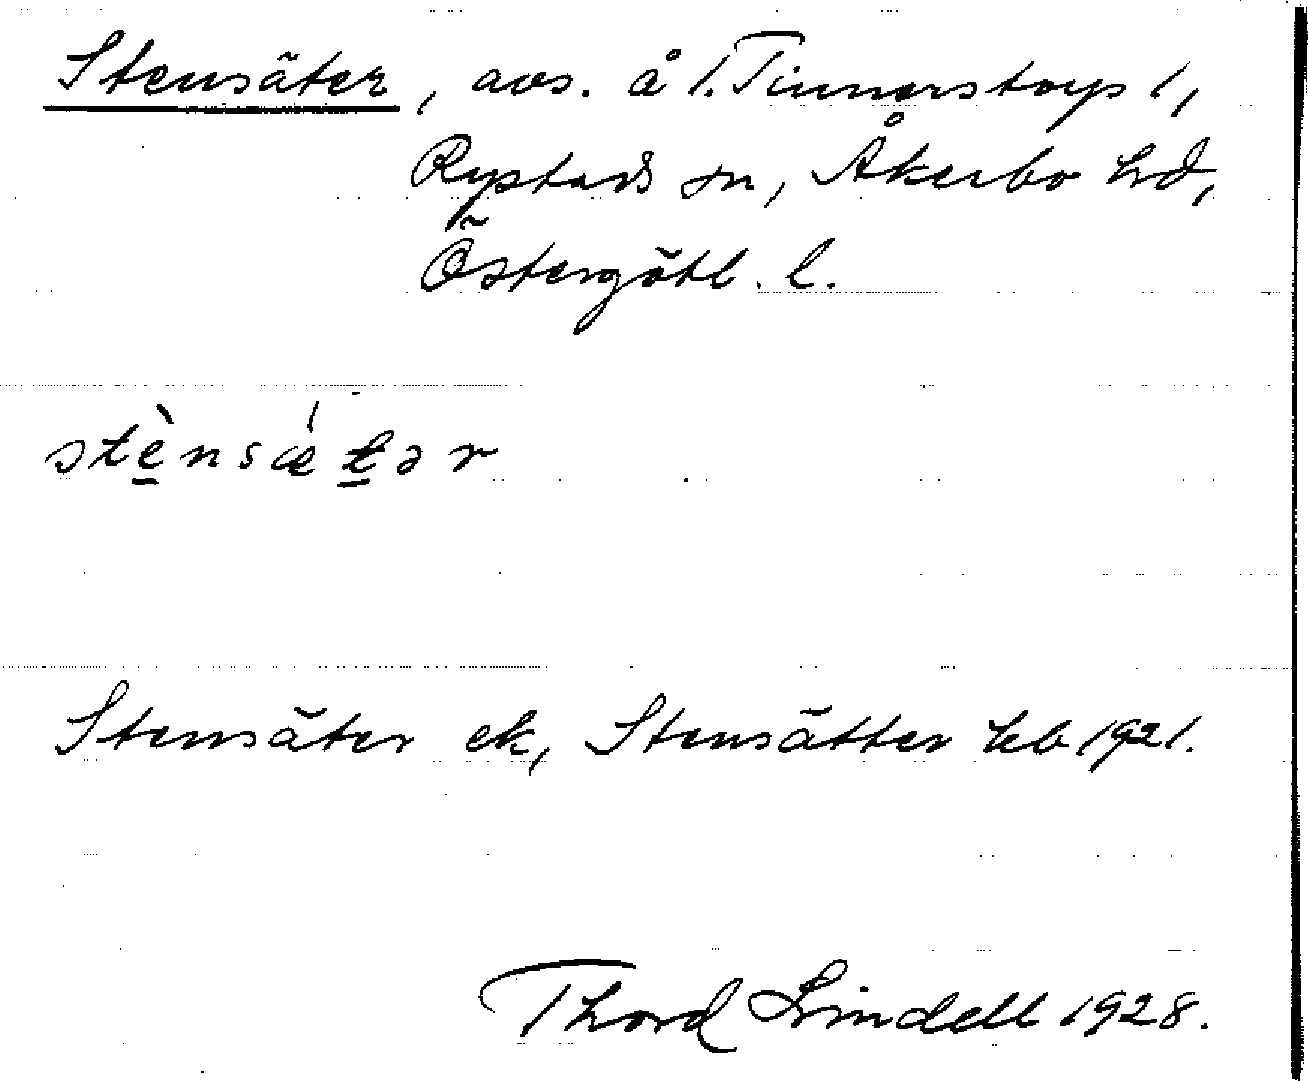 Stensäter, avs. å 1. Tinnerstorps 1,
Rystads sn, Åkerbo hd,
Östergötl. l.
stè̠nsǽt̠ər
Stensäter ek, Stensätter hb 1921.
Thord Lindell 1928.